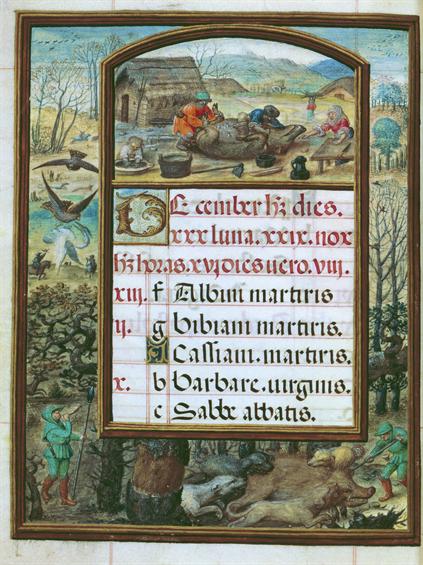 December hꝫ dies.
xxx luna. xxix. nox
hꝫ horas. xvj dies uero. viij.
xiij. f Albini martiris
ij. g bibiani martiris.
A Cassiani. martiris.
x. b barbare. uirginis.
c Sabbe abbatis.